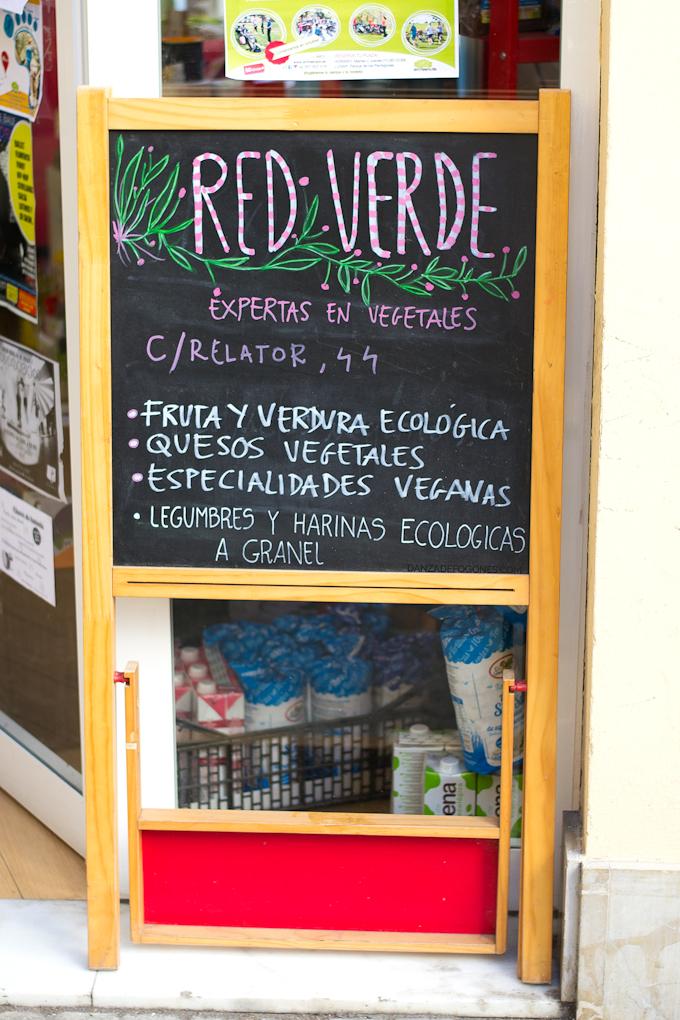 RED VERDE
EXPERTAS EN VEGETALES
C/RELATOR, 44
• FRUTA Y VERDURA ECOLÓGICA
• QUESOS VEGETALES
• ESPECIALIDADES VEGANAS
• LEGUMBRES Y HARINAS ECOLOGICAS
A GRANEL
DANZADEFOGONES.COM
ena